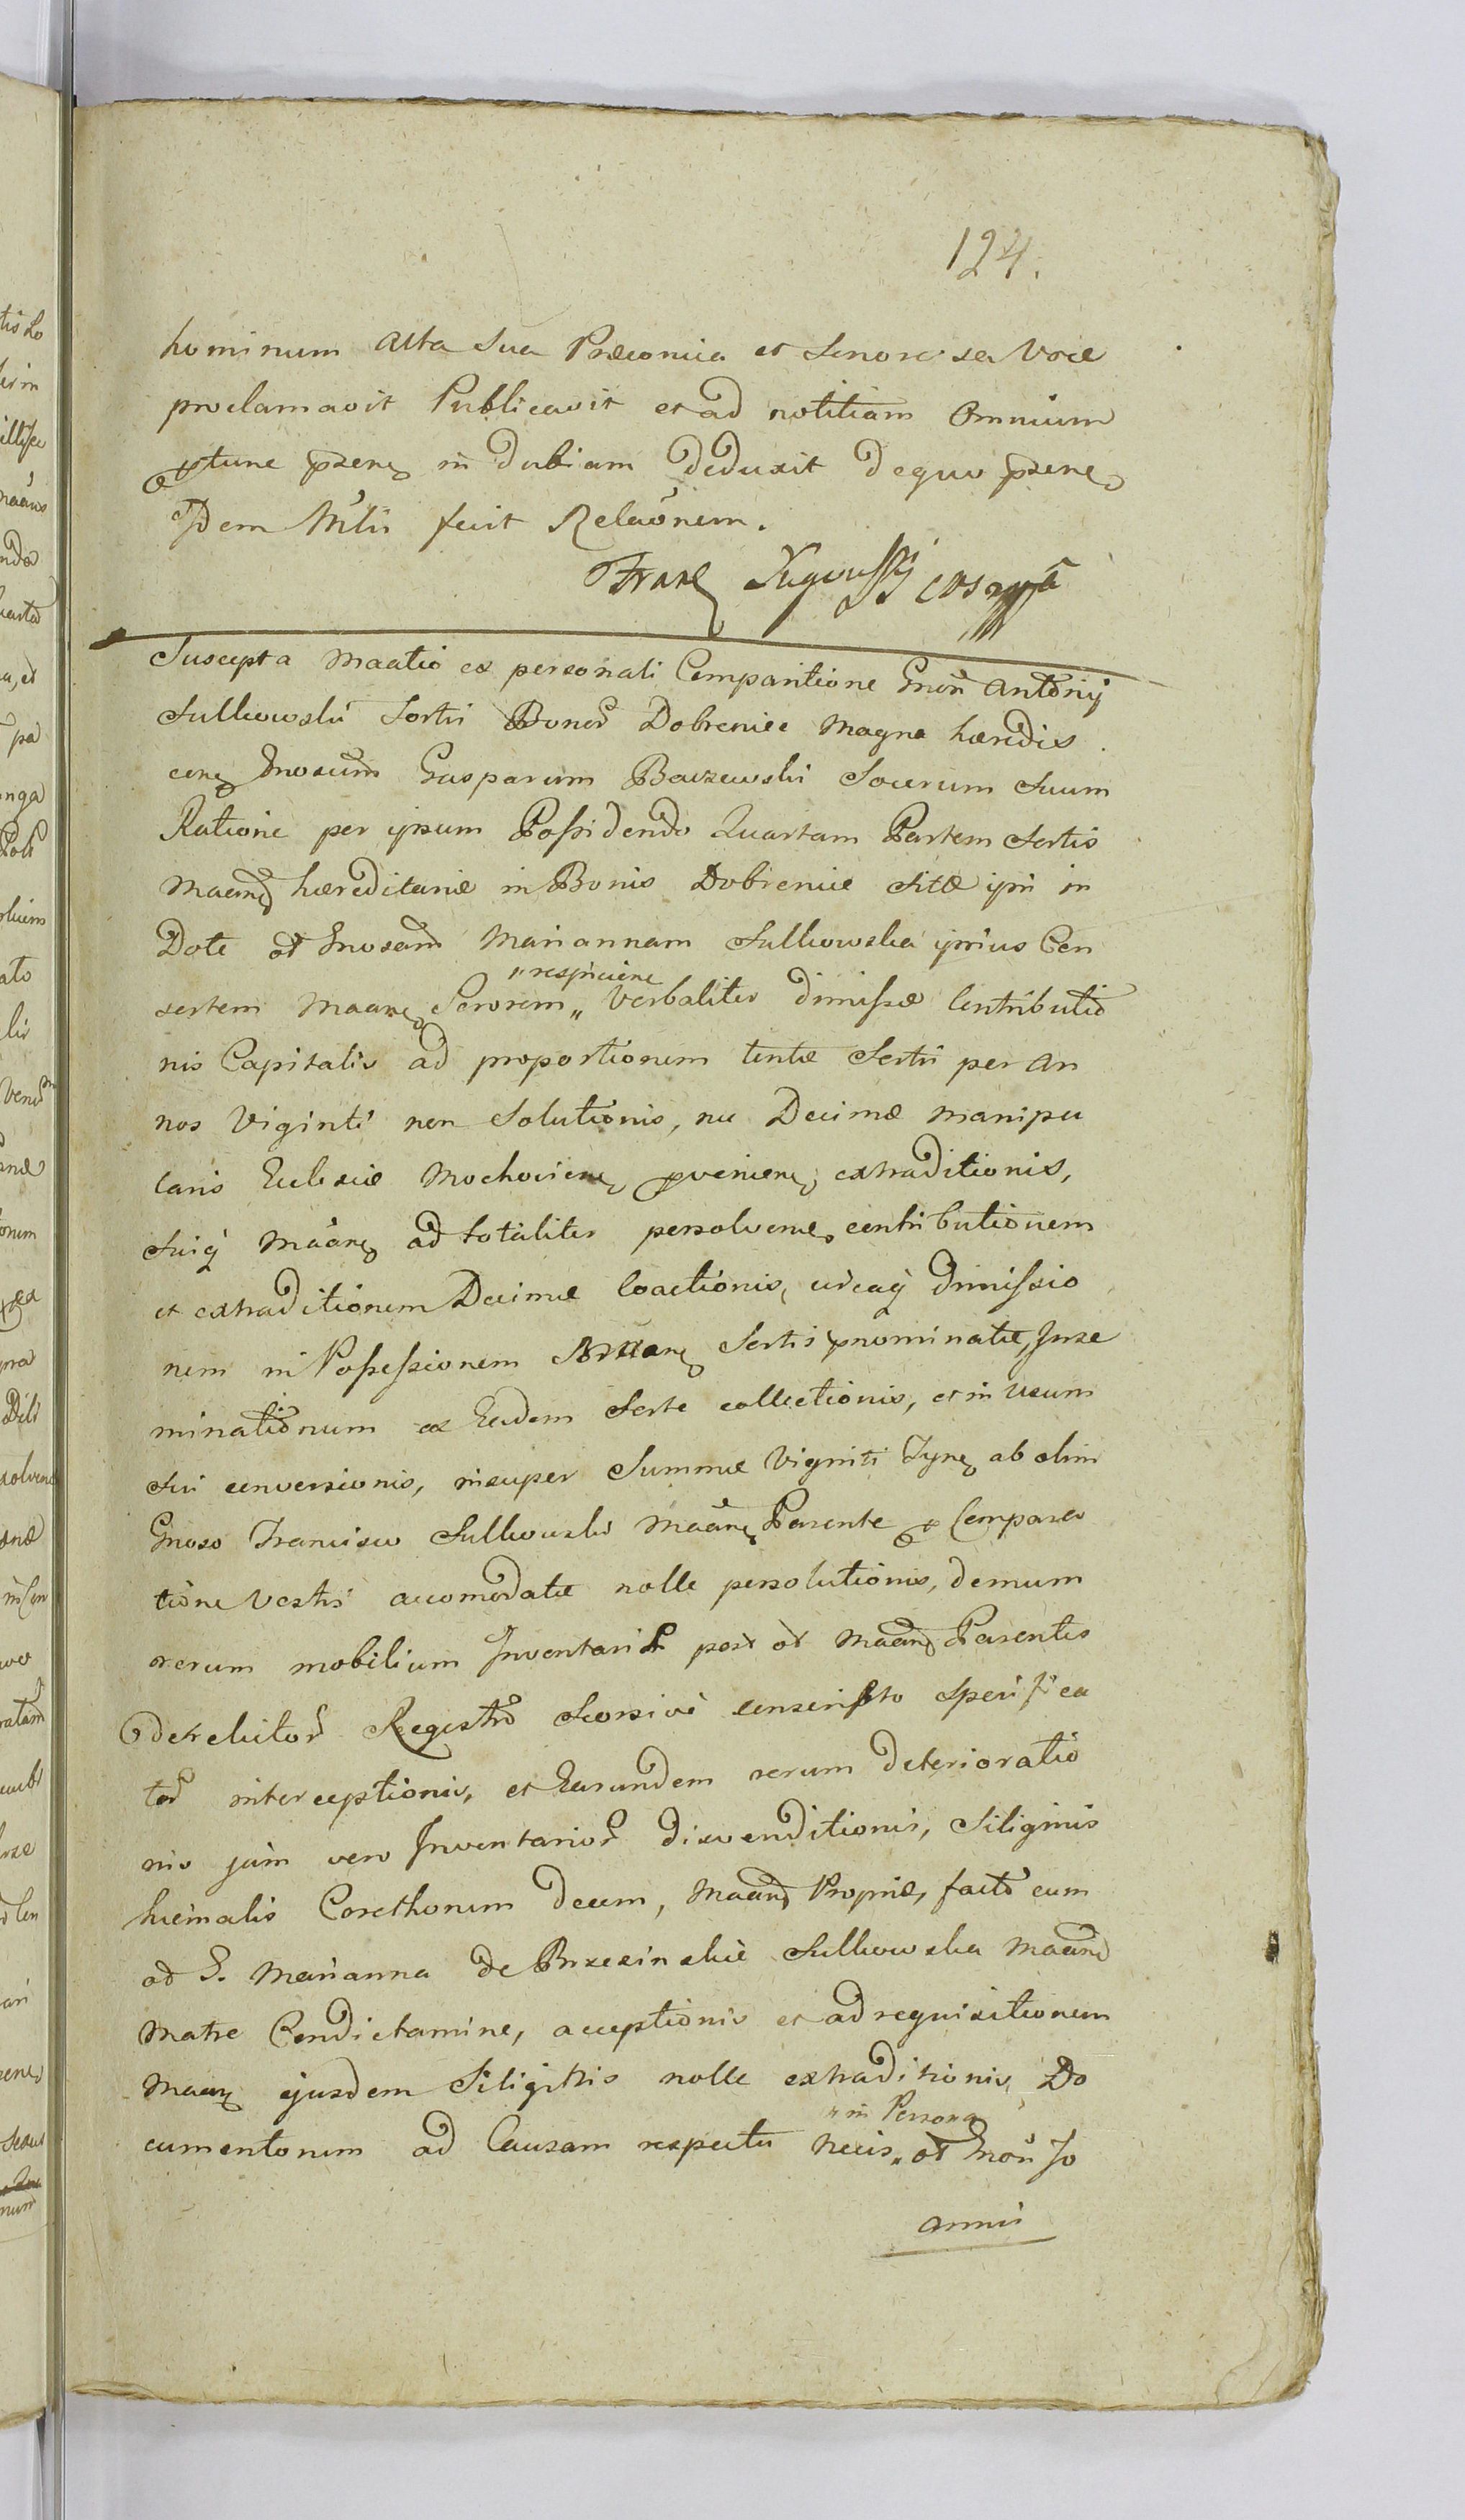 124.
hominum Alta Sua Præconica et Sonorosa Voce
proclamavit Publicavit et ad notitiam Omnium
tunc pñen in dubiam deduxit de quo pñen
Idem Mihi fecit Relaõnem.
Suscepta Maãtio ex personali Comparitione Gnõsi Antonij
Sulkowski Sortis Bonor Dobrenice Magna hæredis
con Gnosum Gasparum Baczewski Socerum Suum
Ratione per ipsum Possidendo Quartam Partem Sortis
Maãn hæreditariæ in Bonis Dobrenice Sitæ ipsi in
Dote ob Gnosam Mariannam Sulkowska ipsius Con
sortem Maãn Sororem „ Verbaliter dimissæ Contributio
„ respiciene
nis Capitalis ad proportionem tentæ Sortis per An
nos Viginti non Solutionis, nec Decimæ manipu
laris Eclesiæ Mochoviens provenien, extraditionis,
Suiq Maãn ad totaliter persolven contributionem
et extraditionem Decimæ Coactionis, circaq dimissio
nem in Possessionem Sortis pnominatæ, Inse
minationum ex Eadem Sorte collectionis, et in Usum
Sui conversionis, insuper Summæ Viginti Tynf ab olim
Gnoso Francisco Sulkowski Maãn Parente Compara
tione Vestis accomodatæ nolle persolutionis, demum
rerum mobilium Inventarior post ob Maãn Parentis
derelictor Registro Seorsive conscripto Specifica
tor interceptionis, et Earundem rerum deterioratio
nis jam vero Inventarior disvenditionis, Siliginis
hiemalis Corethonum decem, Maãn Propriæ, facto cum
ob G. Marianna de Brzezinskie Sulkowska Maãn
Matre Condictamine, acceptionis et ad requisitionem
Maãn ejusdem Siliginis nolle extraditionis, Do
cumentorum ad Causam respectu Necis „ ob Gnõsi Jo
„ in Persona
annis